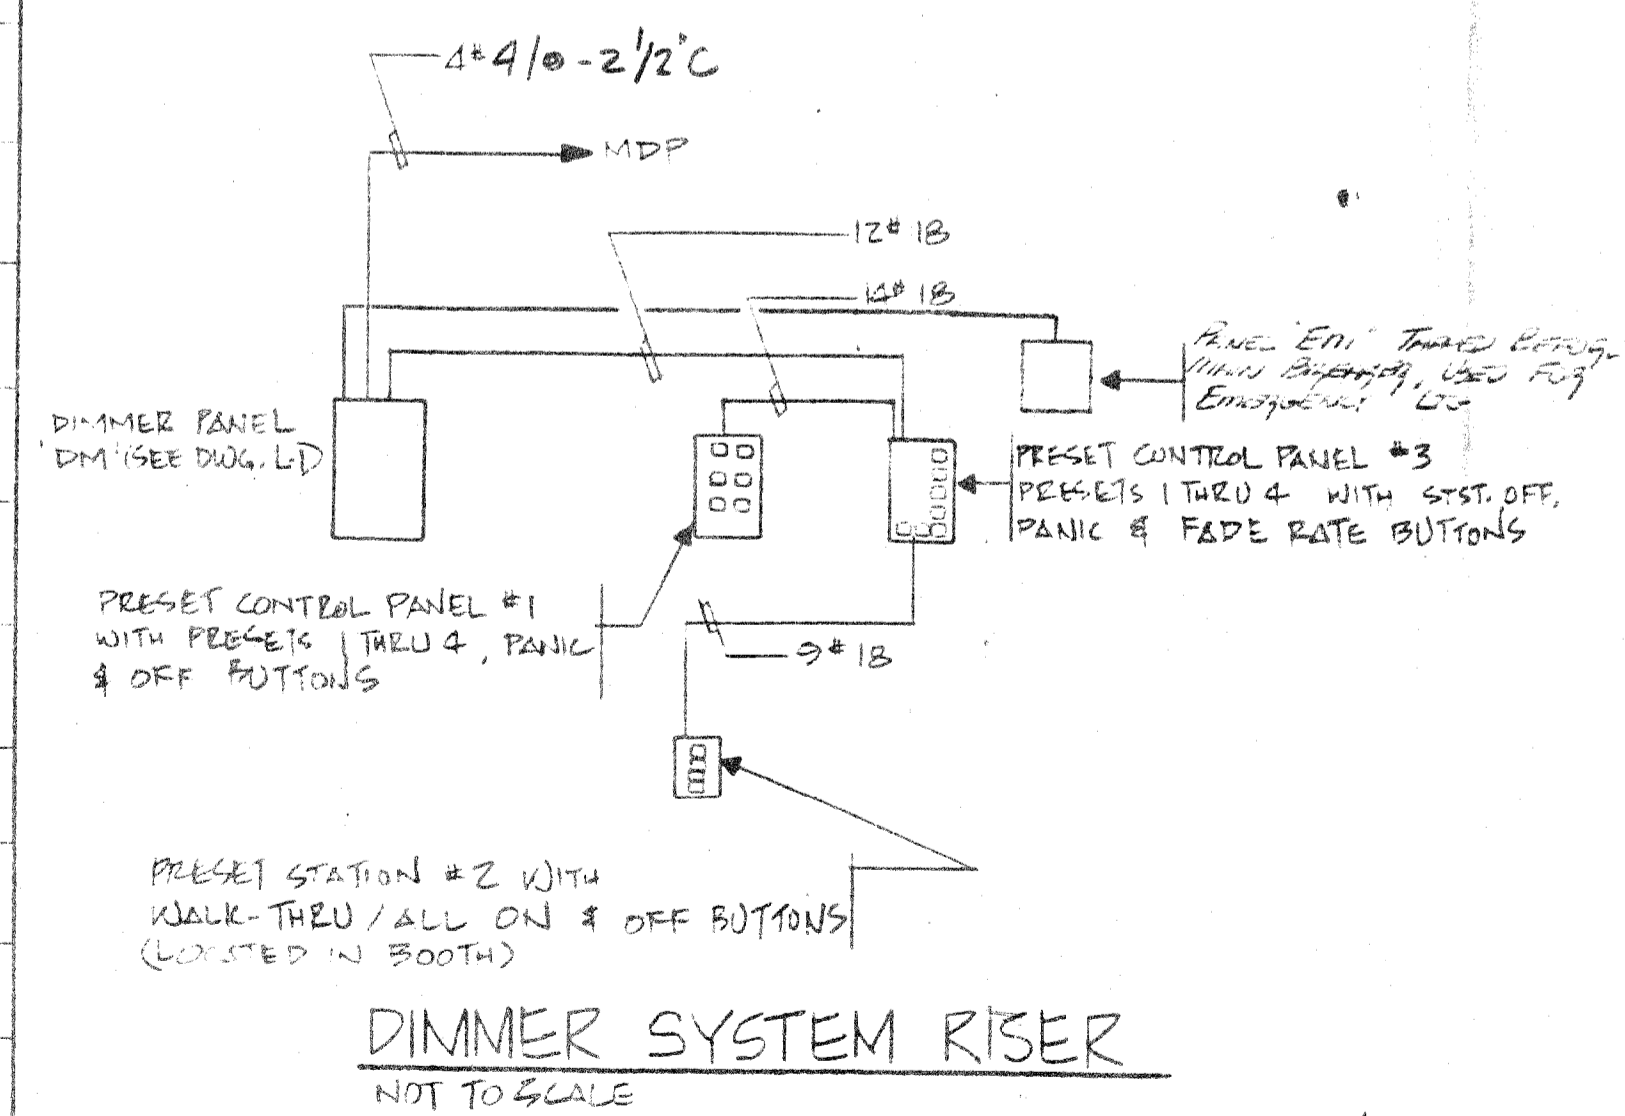 4#4/0-2 1/2"C
MDP
12# 18
14# 18
PANEL 'EM' TAPPED BEFORE
MAIN BREAKER, USED FOR
EMERGENCY LTG
DIMMER PANEL
'DM' (SEE DWG. L-D)
PRESET CONTROL PANEL #3
PRESETS 1 THRU 4 WITH STST. OFF,
PANIC & FADE RATE BUTTONS
PRESET CONTROL PANEL #1
WITH PRESETS 1 THRU 4, PANIC
& OFF BUTTONS
9# 18
PRESET STATION #2 WITH
WALK-THRU/ALL ON & OFF BUTTONS
(LOCATED IN BOOTH)
DIMMER SYSTEM RISER
NOT TO SCALE